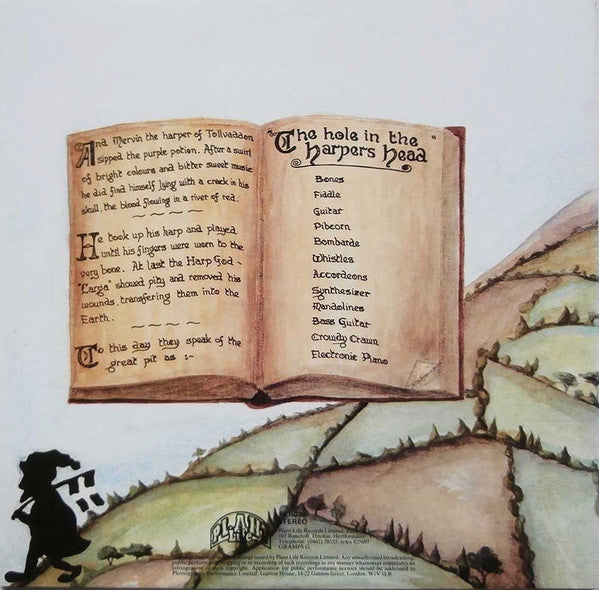 And Mervin the harper of Tollvaddon
sipped the purple potion. After a swirl
of bright colours and bitter sweet music
he did find himself lying with a crack in his
skull, the blood flowing in a river of red.
He took up his harp and played
until his fingers were worn to the
very bone. At last the Harp God ~
"Larga" showed pity and removed his
wounds, transfering them into the
Earth.
To this day they speak of the
great pit as :~
"The hole in the
harpers head"
Bones
Fiddle
Guitar
Pibcorn
Bombarde
Whistles
Accordeons
Synthesizer
Mandolines
Bass Guitar
Crowdy Crawn
Electronic Piano
PLANT
Life
STEREO
Plant Life Records Limited,
Bancroft, Hitchin, Hertfordshire
Telephone: (0462)
issued by Plant Life Records Limited. Any unauthorised broadcasting,
public performance, copying or re-recording of such recordings in any manner whatsoever constitutes an
infringement of such copyright. Application for public performance licences should be addressed to
Phonographic Performance Limited, Ganton House, 14-22 Ganton Street, London, W1V 1LB